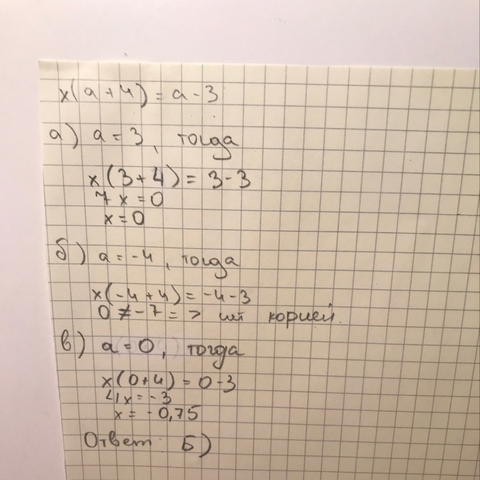 x(a+4) = a-3
а) a = 3, тогда
x(3+4) = 3-3
7x = 0
x = 0
б) a = -4, тогда
x(-4+4) = -4-3
0 ≠ -7 => нет корней.
в) a = 0, тогда
x(0+4) = 0-3
4x = -3
x = -0,75
Ответ: Б)